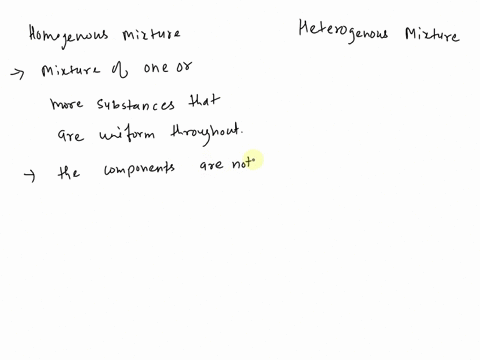 Homogenous mixture
→ Mixture of one or
more substances that
are uniform throughout.
→ the components are not
Heterogenous Mixture